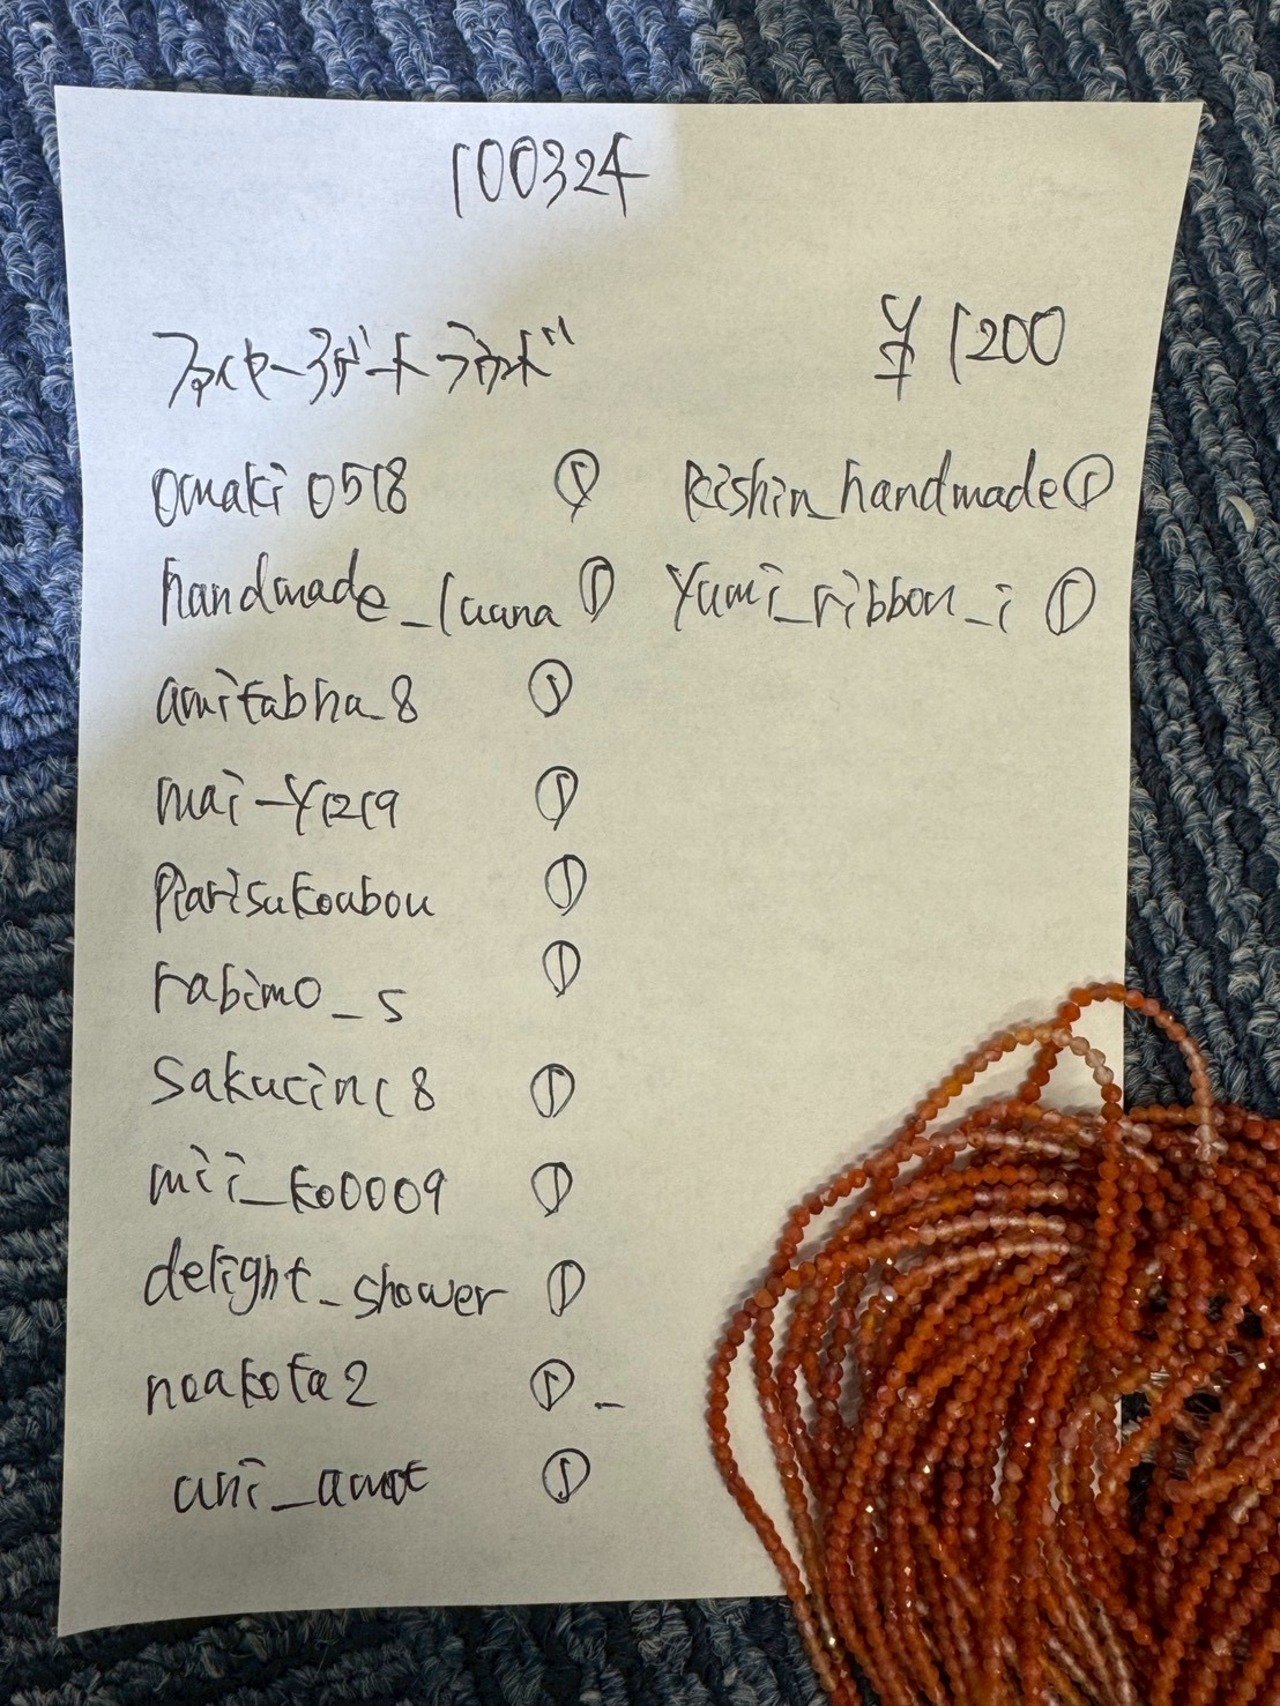 100324
ファイヤーアゲートラウンド ¥1200
omaki0518 ① Rishin_handmade ①
handmade_luana ① Yumi_ribbon_i ①
amitabha_8 ①
mai-y1219 ①
Parisukoubou ①
rabimo_s ①
sakucin18 ①
mii_ko0009 ①
delight_shower ①
noakota2 ①
uni_amot ①